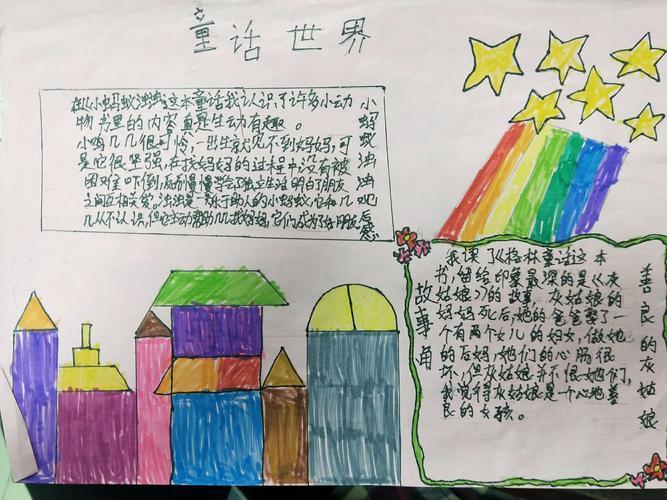 童话世界
在《小蚂蚁浊浊》这本童话我认识了许多小动
物书里的内容真是生动有趣。
小鸣几几很可怜,一出生就见不到妈妈,可
是它很坚强,在找妈妈的过程中没有被
困难吓倒,反而慢慢学会了独立生活,明白了朋友
之间互相关爱,浊浊是一只乐于助人的小蚂蚁,它和几
几从不认识,但它主动帮助几几找妈妈,它们成为了好朋友
小蚂蚁浊浊
后感
故事角
我读了《格林童话》这本
书,留给印象最深的是《灰
姑娘》的故事,灰姑娘的
妈妈死后,她的爸爸娶了一
个有两个女儿的妇女,做她
的后妈,她们的心肠很
坏,但灰姑娘并不恨她们,
我觉得灰姑娘是一个心地善
良的女孩。
善良的灰姑娘